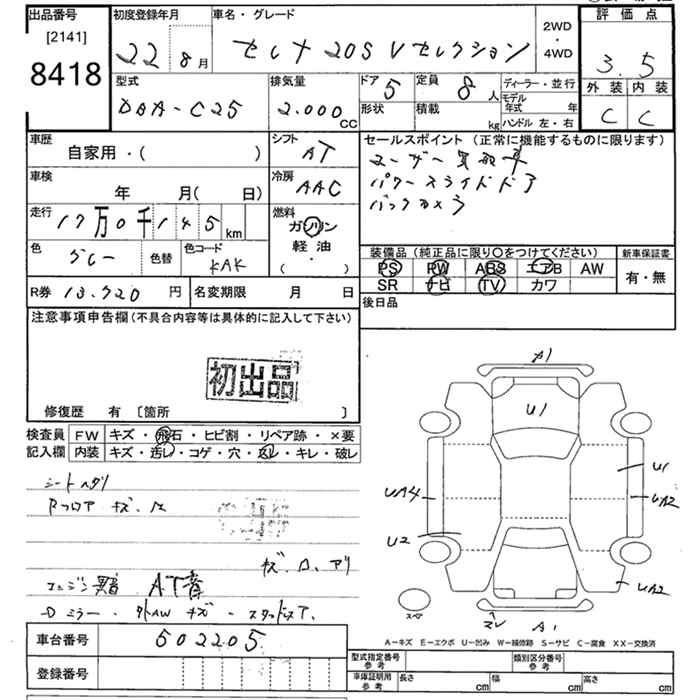 出品番号 初度登録年月 車名・グレード 評価点
[2141]
8418
22 8月 セレナ 20S Vセレクション 2WD ・ 4WD 3.5
型式 排気量 ドア 5 定員 8人 ディーラー・並行 外装 内装
DBA-C25 2.000 CC 形状 積載 kg モデル年式 年 ハンドル 左・右 C C
車歴 シフト セールスポイント (正常に機能するものに限ります)
自家用・( ) AT ユーザー買取車
車検 冷房 パワースライドドア
年 月( 日) AAC バックカメラ
走行 17万0千145km 燃料 ガソリン
軽油
・
( )
色 グレー 色替 色コード KAK
装備品(純正品に限り○をつけてください) 新車保証書
PS PW ABS エアB AW 有・無
SR ナビ TV カワ
R券 13.720円 名変期限 月 日 後日品
注意事項申告欄(不具合内容等は具体的に記入して下さい)
初出品
修復歴 有 [箇所 ]
検査員 FW キズ・飛石・ヒビ割・リペア跡・×要
記入欄 内装 キズ・汚レ・コゲ・穴・スレ・キレ・破レ
シートヘタリ
Rフロア キズ
キズ.
エンジン異音 AT
ミラー キズ
A1
U1
U1
UA4
UA2
U2
UA2
スペア
A1
A-キズ E-エクボ U-凹み W-補修跡 S-サビ C-腐食 XX-交換済
車台番号 502205
登録番号
型式指定番号 参考 類別区分番号 参考
車庫証明用 参考 長さ cm 幅 cm 高さ cm